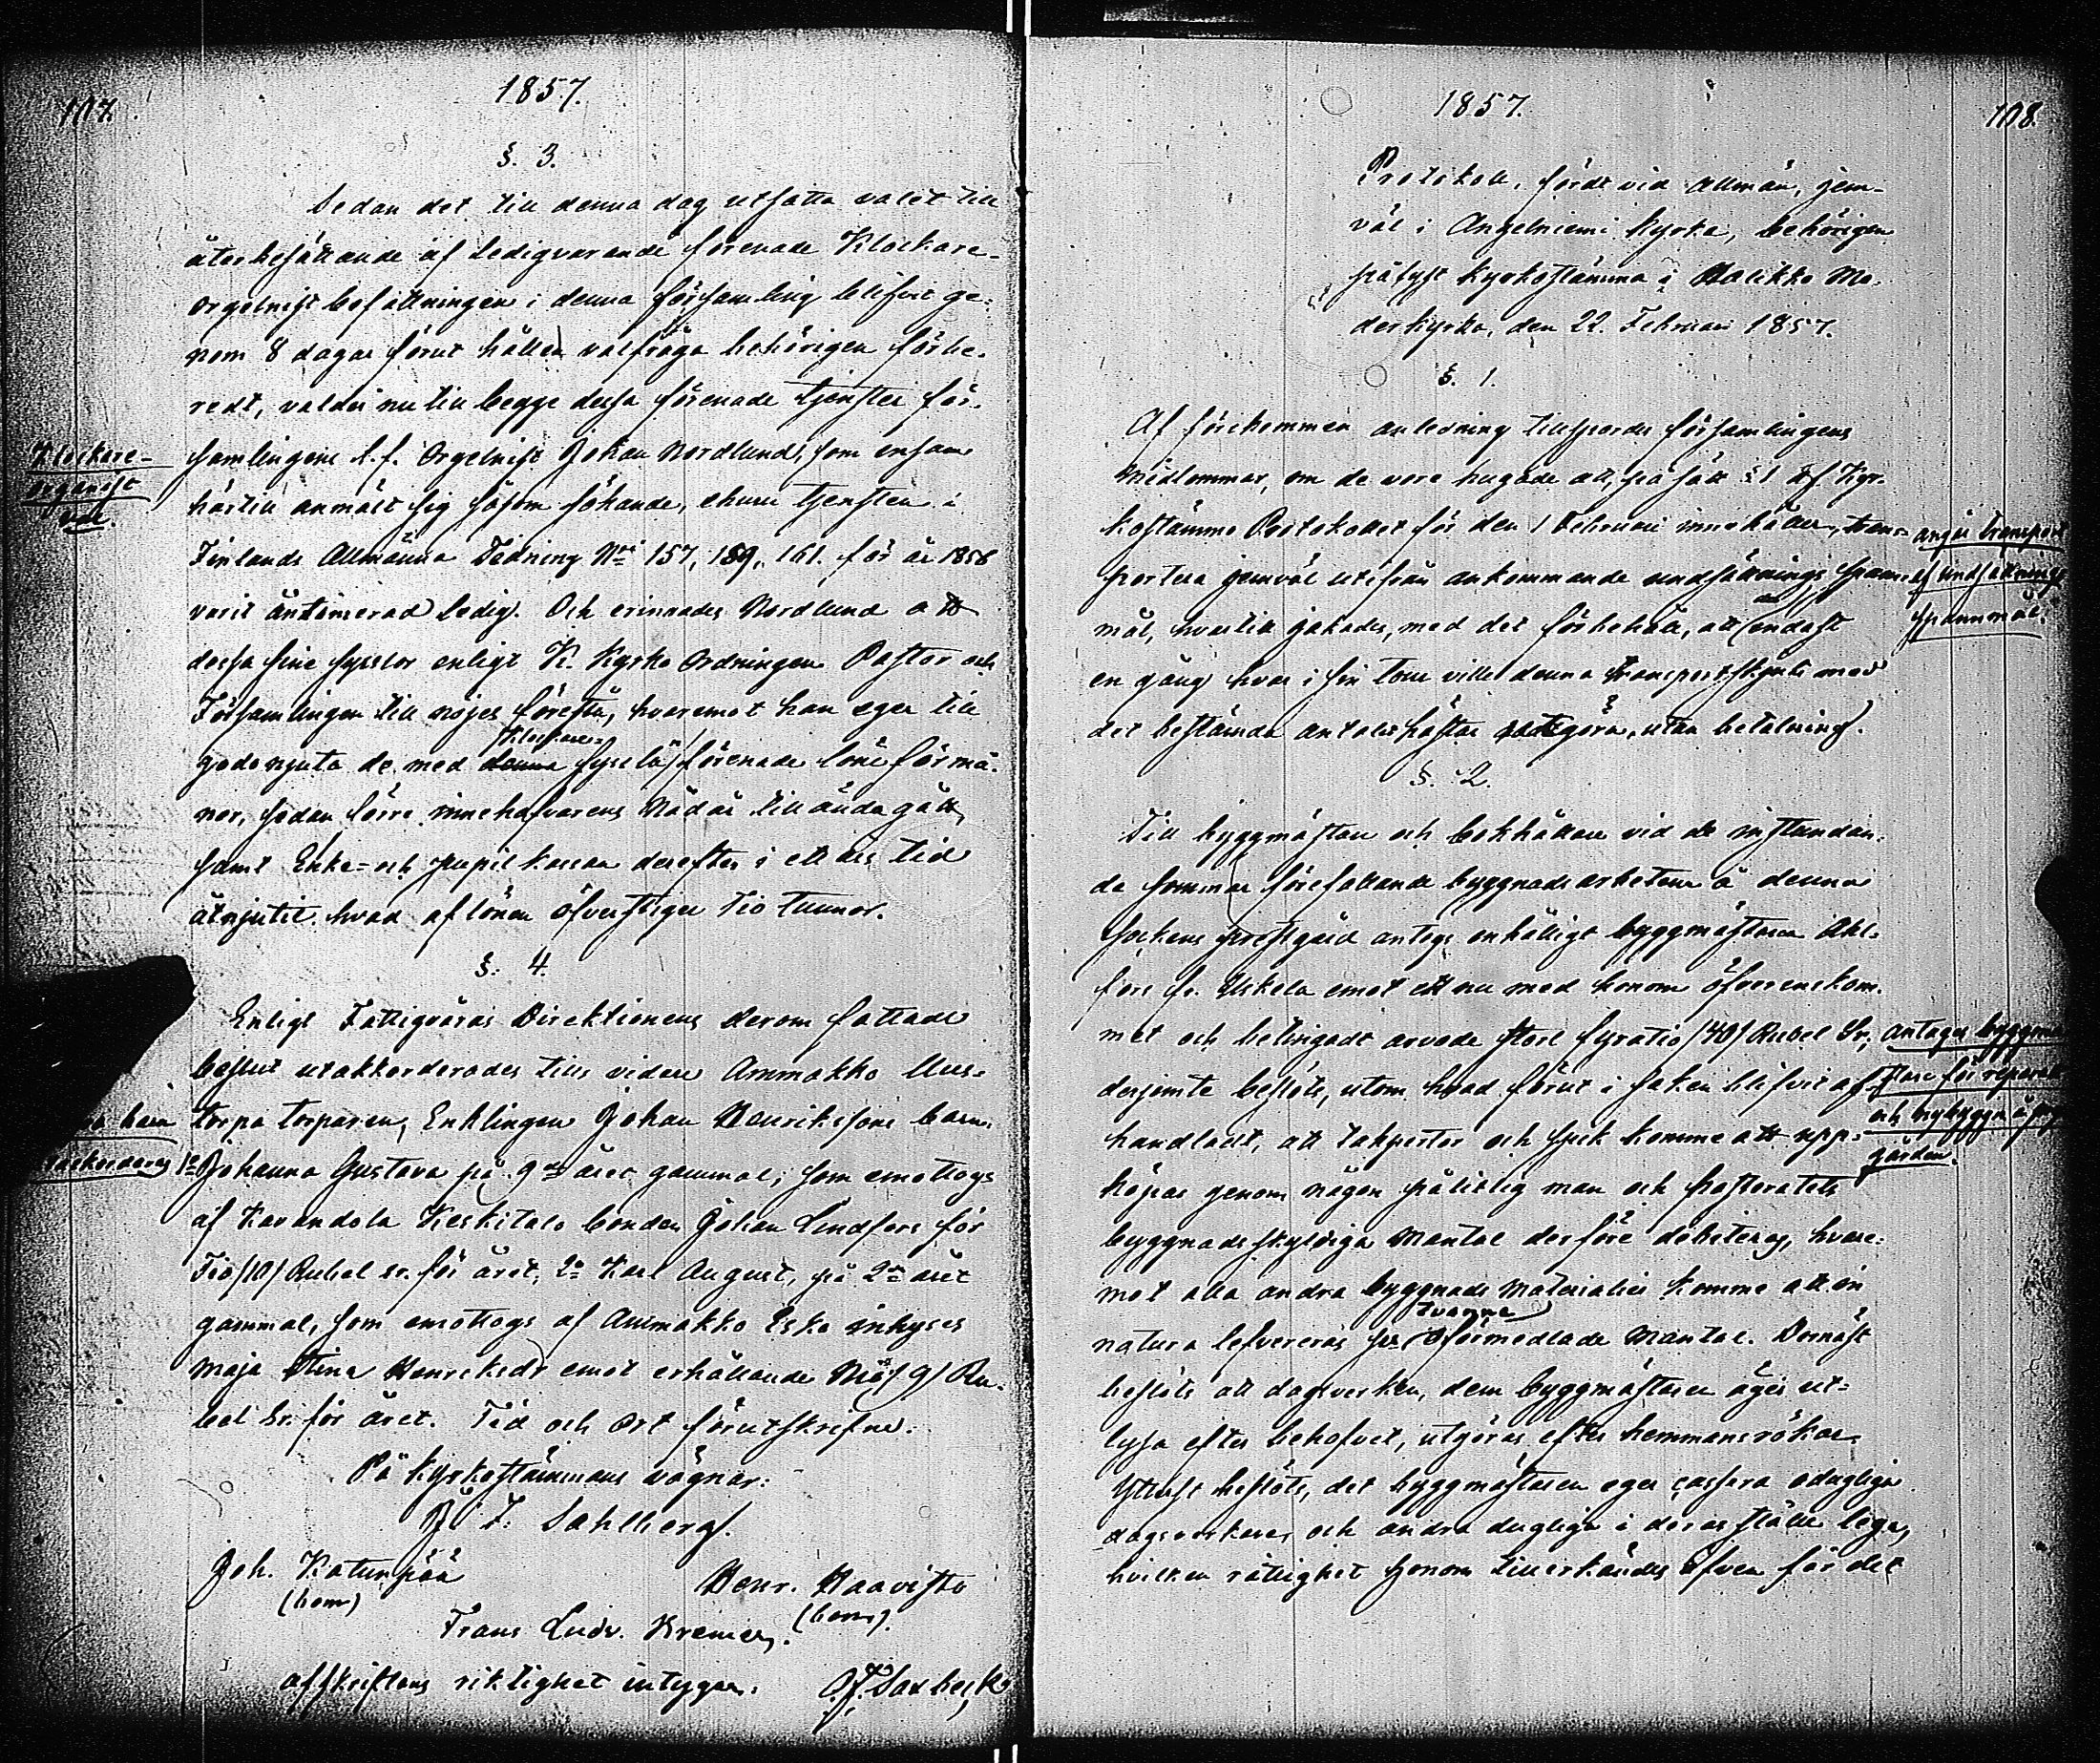 107.
1857.
§. 3.
Sedan det till denna dag utsatta valet till
återbesättande af ledigvarande förenade Klockare-
orgelnist befattningen i denna församling blifvit ge-
nom 8 dagar förut hållen valfråga behörigen förbe-
redt, valdes nu till begge dessa förenade tjenster för-
Klockare-
organist
val.
samlingens t.f. Orgelnist Johan Nordlund, som ensam
härtill anmält sig såsom sökande, ehuru tjensten i
Finlands Allmänna Tidning N:ris 157, 159, 161. för år 1856
varit antimerad ledig. Och erinrades Nordlund att
dessa sine sysslor enligt K. Kyrko Ordningen Pastor och
Församlingen till nöjes förestå, hvaremot han eger till
godo njuta de med denna Klockare- syssla förenade löneförmå-
ner, sedan förre innehafvarens Nådår tilländagått,
samt Enke- och pupilkassan derefter i ett års tid
åtnjutit hvad af lönen öfverstiger tio tunnor.
§. 4.
Enligt Fattigvårds Direktionens derom fattade
beslut utakkorderades tills vidare Ammakko Mus-
barn
torpa torparen, Enklingen Johan Henrikssons barn,
1:o Johanna Gustava på 9:de året gammal, som emottogs
af Kavandola Keskitalo bonden Johan Lindfors för
Tio /10/ Rubel sr. för året, 2:o Karl August, på 2:dra året
gammal, som emottogs af Ammakko Esko inhyses
Maja Stina Henriksdr emot erhållande Nio /9/ Ru-
bel Sr. för året. Tid och Ort förutskrifne.
På Kyrkostämmans vägnar:
J. F. Sahlberg.
Joh. Katunpää
(bom)
Henr. Haavisto
(bom).
Frans Ludv. Kremer.
Afskriftens riktighet intygar:
108.
1857.
Protokoll, fördt vid Allmän, jem-
väl i Angelniemi Kyrka, behörigen
pålyst Kyrkostämma i Halikko Mo-
derkyrka, den 22. Februari 1857.
§. 1.
Af förekommen anledning tillspordes församlingens
Medlemmar, om de vore hugade att, på sätt § 1 af Kyr-
kostämmo Protokollet för den 1 Februari innehåller, trans-
angår transport
portera jemväl utifrån ankommande undsättnings spann-
af undsättnings
spannmål.
mål, hvartill jakades, med det förbehåll, att endast
en gång hvar i sin tour ville denna transportskjuts med
det bestämda antalet hästar utgöra, utan betalning.
§. 2.
Till byggmästare och bokhållare vid de instundan-
de sommar förefallande byggnads arbetena å denna
sockens prestgård antogs enhälligt byggmästaren Ahl-
fors fr. Uskela emot ett nu med honom öfverenskom-
met och betingadt arvode stort fyratio /40/ Rubel Sr;
antages byggmä-
stare för reparat.
och nybyggn. å prest
gården.
derjemte beslöts, utom hvad förut i saken blifvit af-
handladt, att takpertor och spik komme att upp-
köpas genom någon pålitlig man och pastoratets
byggnadsskyldiga Mantal derföre debiteras, hvare-
mot alla andra byggnads materialier komme att in
natura lefvereras per oförmedlade Mantal. Dernäst
beslöts att dagsverken, dem byggmästaren äger ut-
lysa efter behofvet, utgöras efter hemmansrökar.
Ytterst beslöts, det byggmästaren eger cassera odugliga
dagsverkare och andra dugliga i deras ställe lega,
hvilken rättighet honom tillerkändes äfven för det